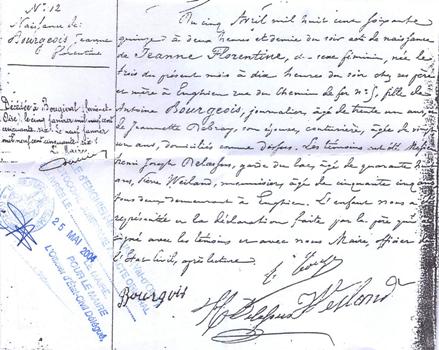 N.º 12
Naissance de
Bourgeois Jeanne
Florentine
Décédée à Bougival (Seine et
Oise) le cinq janvier mil neuf cent
cinquante six. Le neuf janvier
mil neuf cent cinquante six
Le Maire
25 MAI 2004
POUR LE MAIRE
L'Officier d'État-Civil Délégué,
Du cinq Avril mil huit cent soixante
quinze à deux heures et demie du soir acte de naissance
de Jeanne Florentine, du sexe féminin, née le
trois du présent mois à dix heures du soir chez ses père
et mère à Enghien rue du Chemin de fer n.º 5, fille de
Antoine Bourgeois, journalier, âgé de trente un ans
de Jeannette Debray, son épouse, couturière, âgée de vingt
un ans, domiciliés comme dessus. Les témoins ont été
Henri Joseph Delafosse, garde du lac, âgé de quarante
ans, Pierre Weiland, menuisier, âgé de cinquante cinq
tous deux demeurant à Enghien. L'enfant nous a
représentée et la déclaration faite par le père qui
signé avec les témoins et avec nous Maire, officier de
l'État Civil, après lecture.
Bourgois
Delafosse Weiland